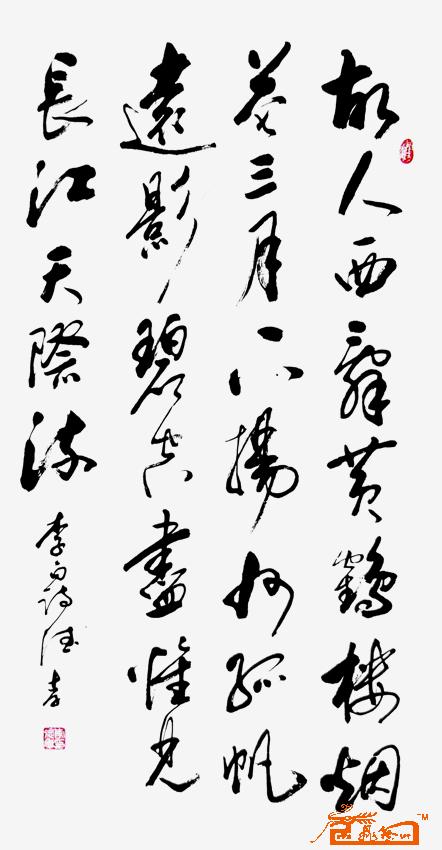 故人西辞黄鹤楼烟
花三月下揚州孤帆
遠影碧空盡惟見
長江天際流
李白詩 德孝